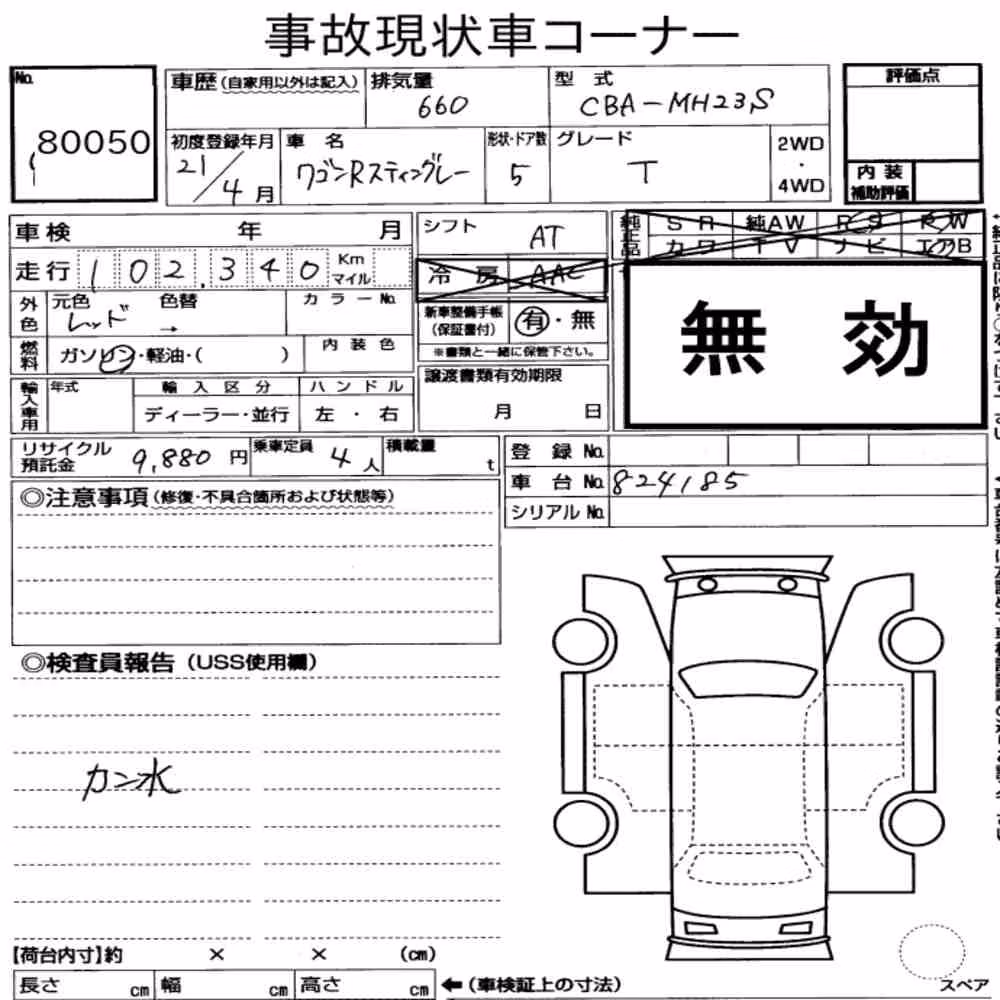 事故現状車コーナー
No. 80050
車歴(自家用以外は記入) 排気量 660 型式 CBA-MH23S
初度登録年月 21/4月 車名 ワゴンRスティングレー 形状・ドア数 5 グレード T 2WD・4WD
評価点
内装補助評価
車検 年 月
走行 102,340 Km マイル
外色 元色 レッド 色替 → カラーNo.
燃料 ガソリン・軽油・( ) 内装色
輸入車用 年式 輸入区分 ディーラー・並行 ハンドル 左・右
シフト AT
冷房 AAC
新車整備手帳(保証書付) 有・無
※書類と一緒に保管下さい。
譲渡書類有効期限
月 日
純正品 SR 純AW RS RW
カワ TV ナビ エアB
無効
リサイクル預託金 9,880円 乗車定員 4人 積載量 t
登録No.
車台No. 824185
シリアルNo.
◎注意事項(修復・不具合箇所および状態等)
◎検査員報告(USS使用欄)
カン水
【荷台内寸】約 × × (cm)
長さ cm 幅 cm 高さ cm ←(車検証上の寸法)
スペア